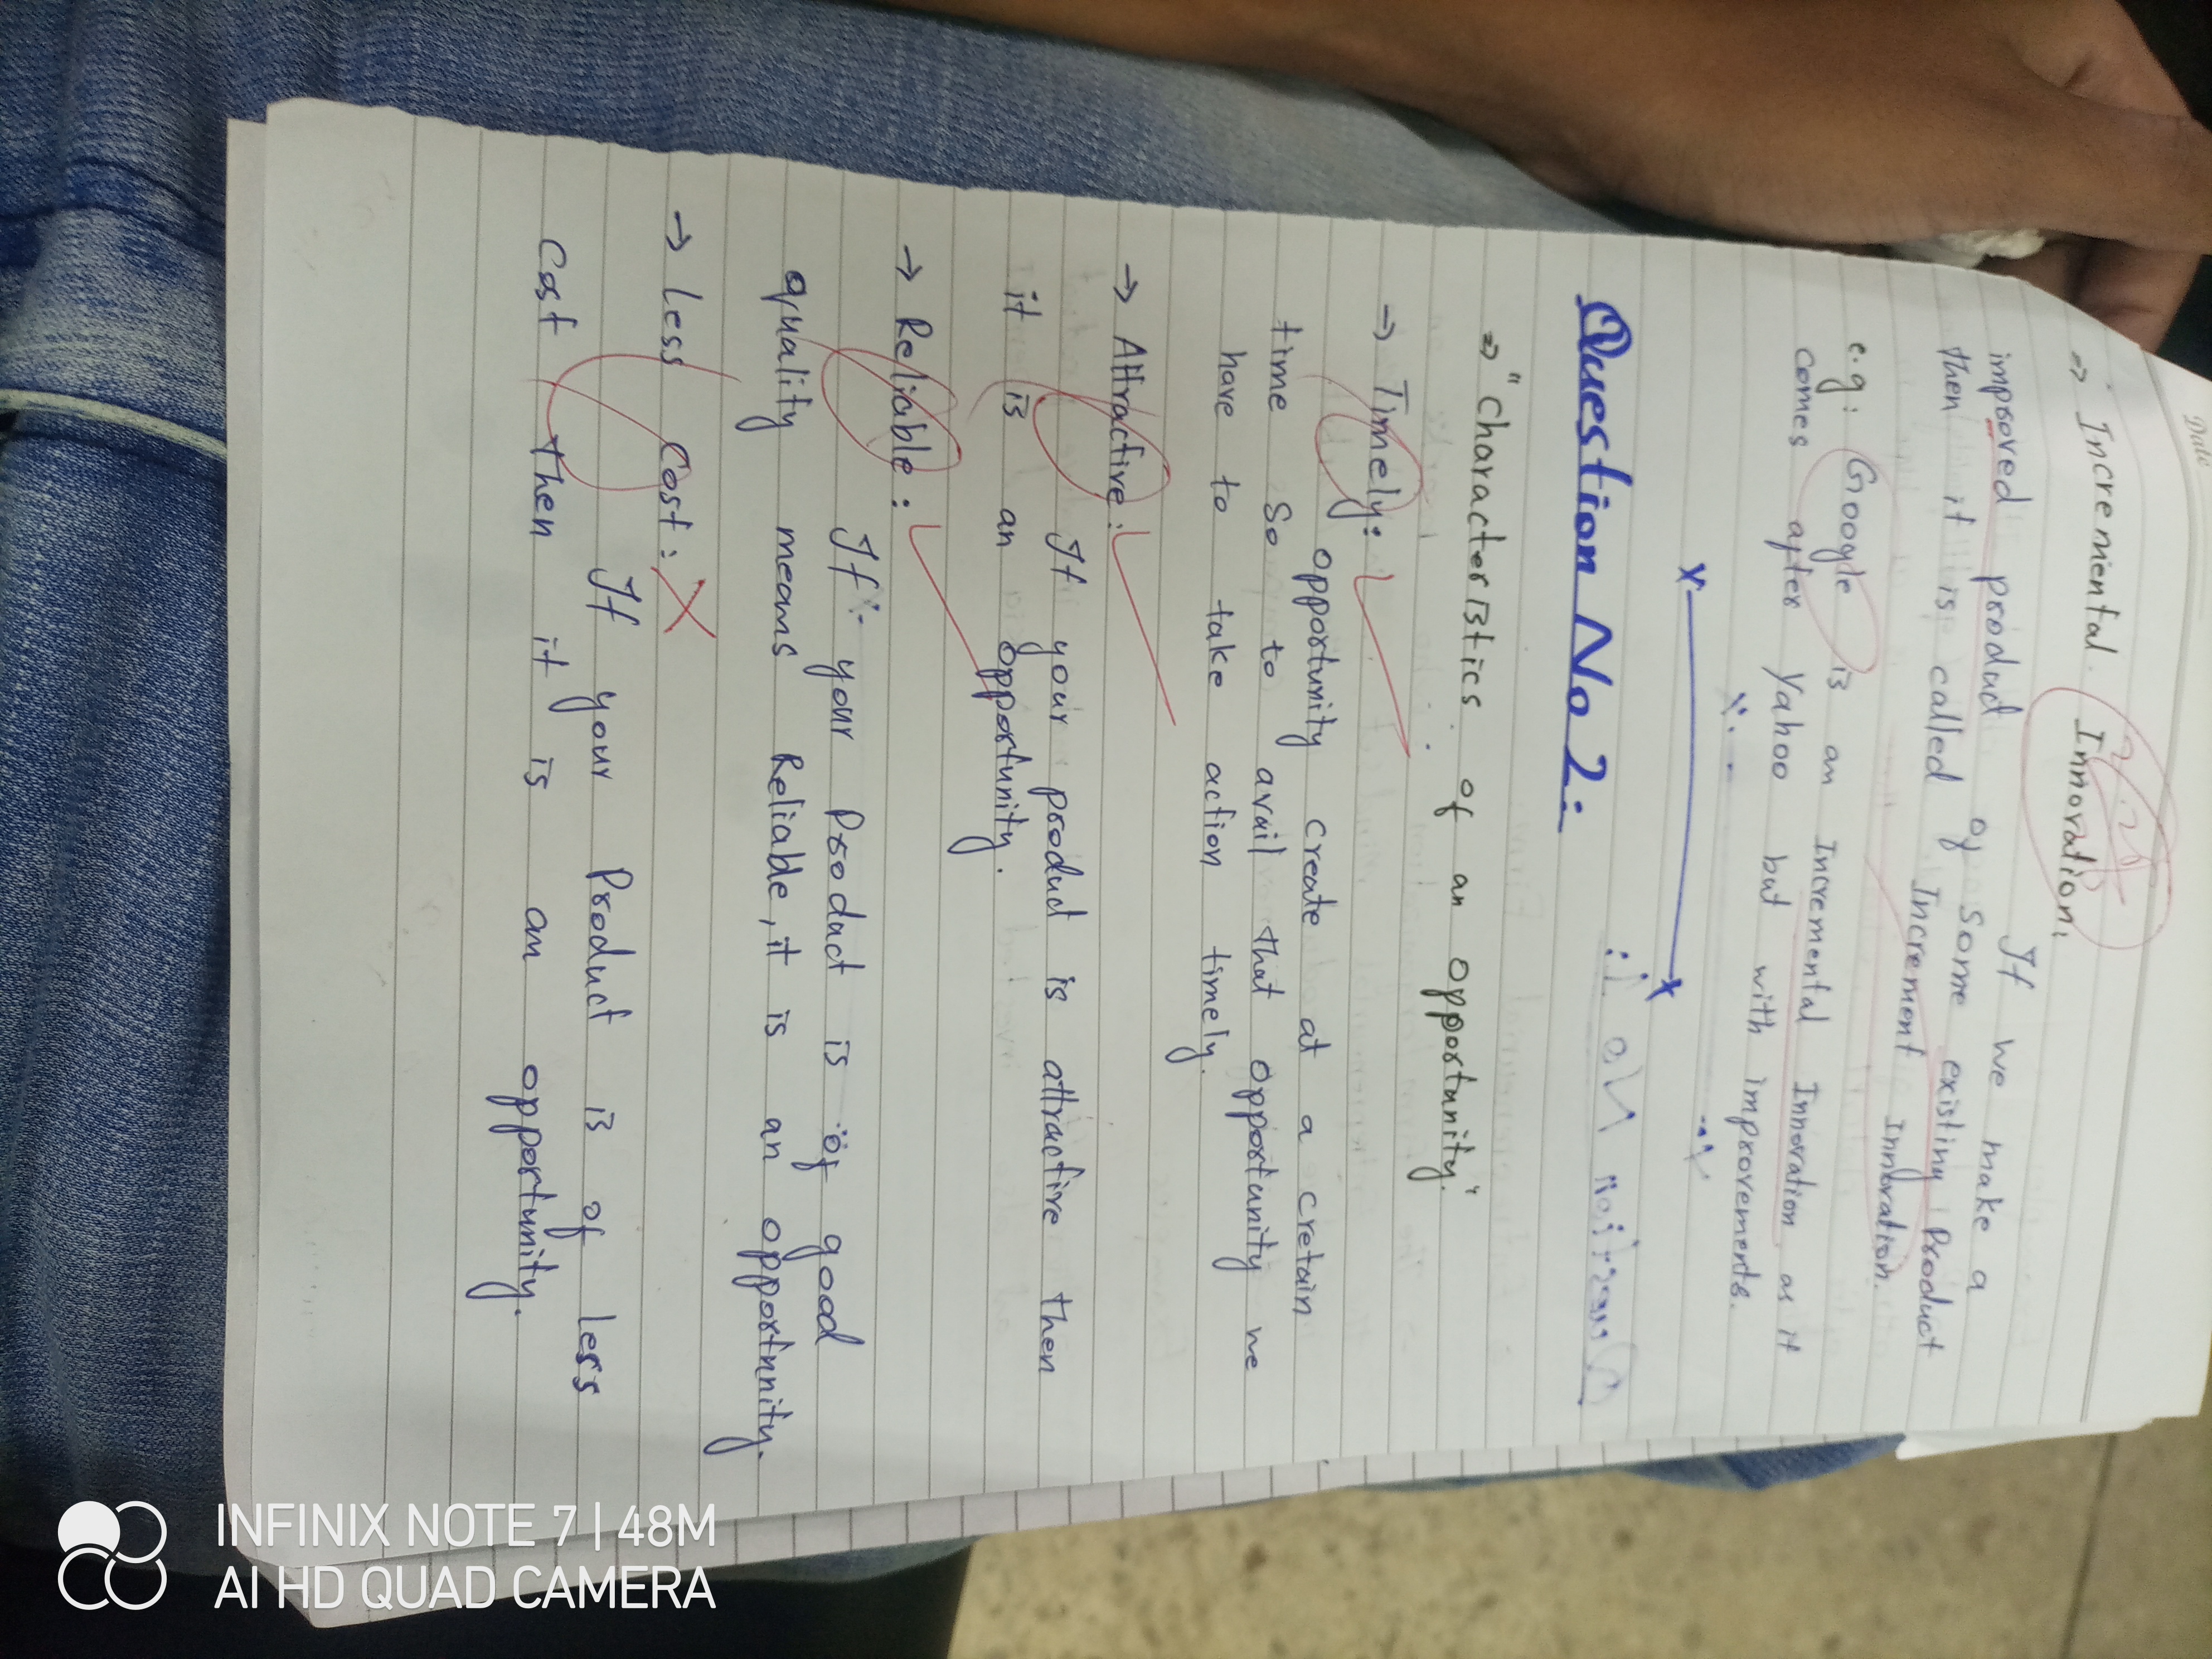 Date
=> Incremental Innovation:
If we make a
improved product of some existing Product
then it is called Increment Innovation.
e.g: Google is an Incremental Innovation as it
comes after Yahoo but with improvements.
x x
Question No 2:
=> "Characteristics of an opportunity."
→ Timely:
opportunity create at a cretain
time So to avail that opportunity we
have to take action timely.
→ Attractive:
If your product is attractive then
it is an opportunity.
→ Reliable:
If your Product is of good
quality means Reliable, it is an opportunity.
→ Less Cost: X
If your Product is of less
Cost then it is an opportunity.
INFINIX NOTE 7 | 48M
AI HD QUAD CAMERA